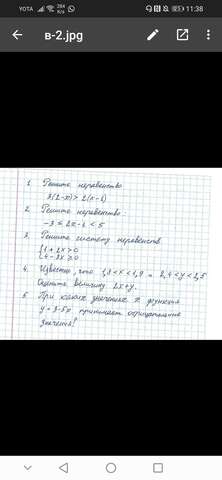 YOTA 284 K/s 11:38
в-2.jpg
1. Решите неравенство
3(2-x)>2(x-6)
2. Решите неравенство
-3 ≤ 2x-1 < 5
3. Решите систему неравенств
{1+2x>0
{4-3x≥0
4. Известно, что 1,8<x<1,9 и 2,4<y<2,5
Оцените величину 2x+y.
5. При каких значениях x функция
y=3-5x принимает отрицательные
значения?